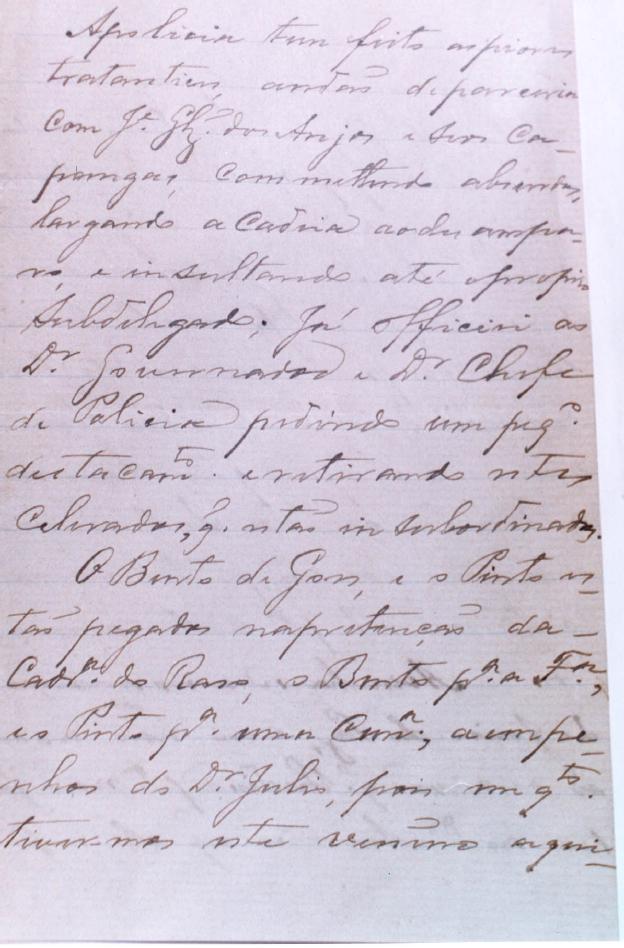 A policia tem feito as piores
tratantices, andão de parceria
com Jº. Glz. dos Anjos e seos Ca-
pangas, commettendo absurdos,
largando a Cadeia ao desampa-
ro, e insultando até o proprio
Subdelegado; Já officiei ao
Dr. Governador e Dr. Chefe
de Policia pedindo um peqº.
destacamtº. e retirando estes
Celerados, q. estão insubordinados.
O Bento de Goes, e o Pinto es-
tão pegados na pretenção da-
Cadrª. do Raso, o Bento pª. a Fª.,
e o Pinto pª. uma Cunª., a empe-
nhos do Dr. Julio, pois em qtº.
tivermos este veneno aqui-